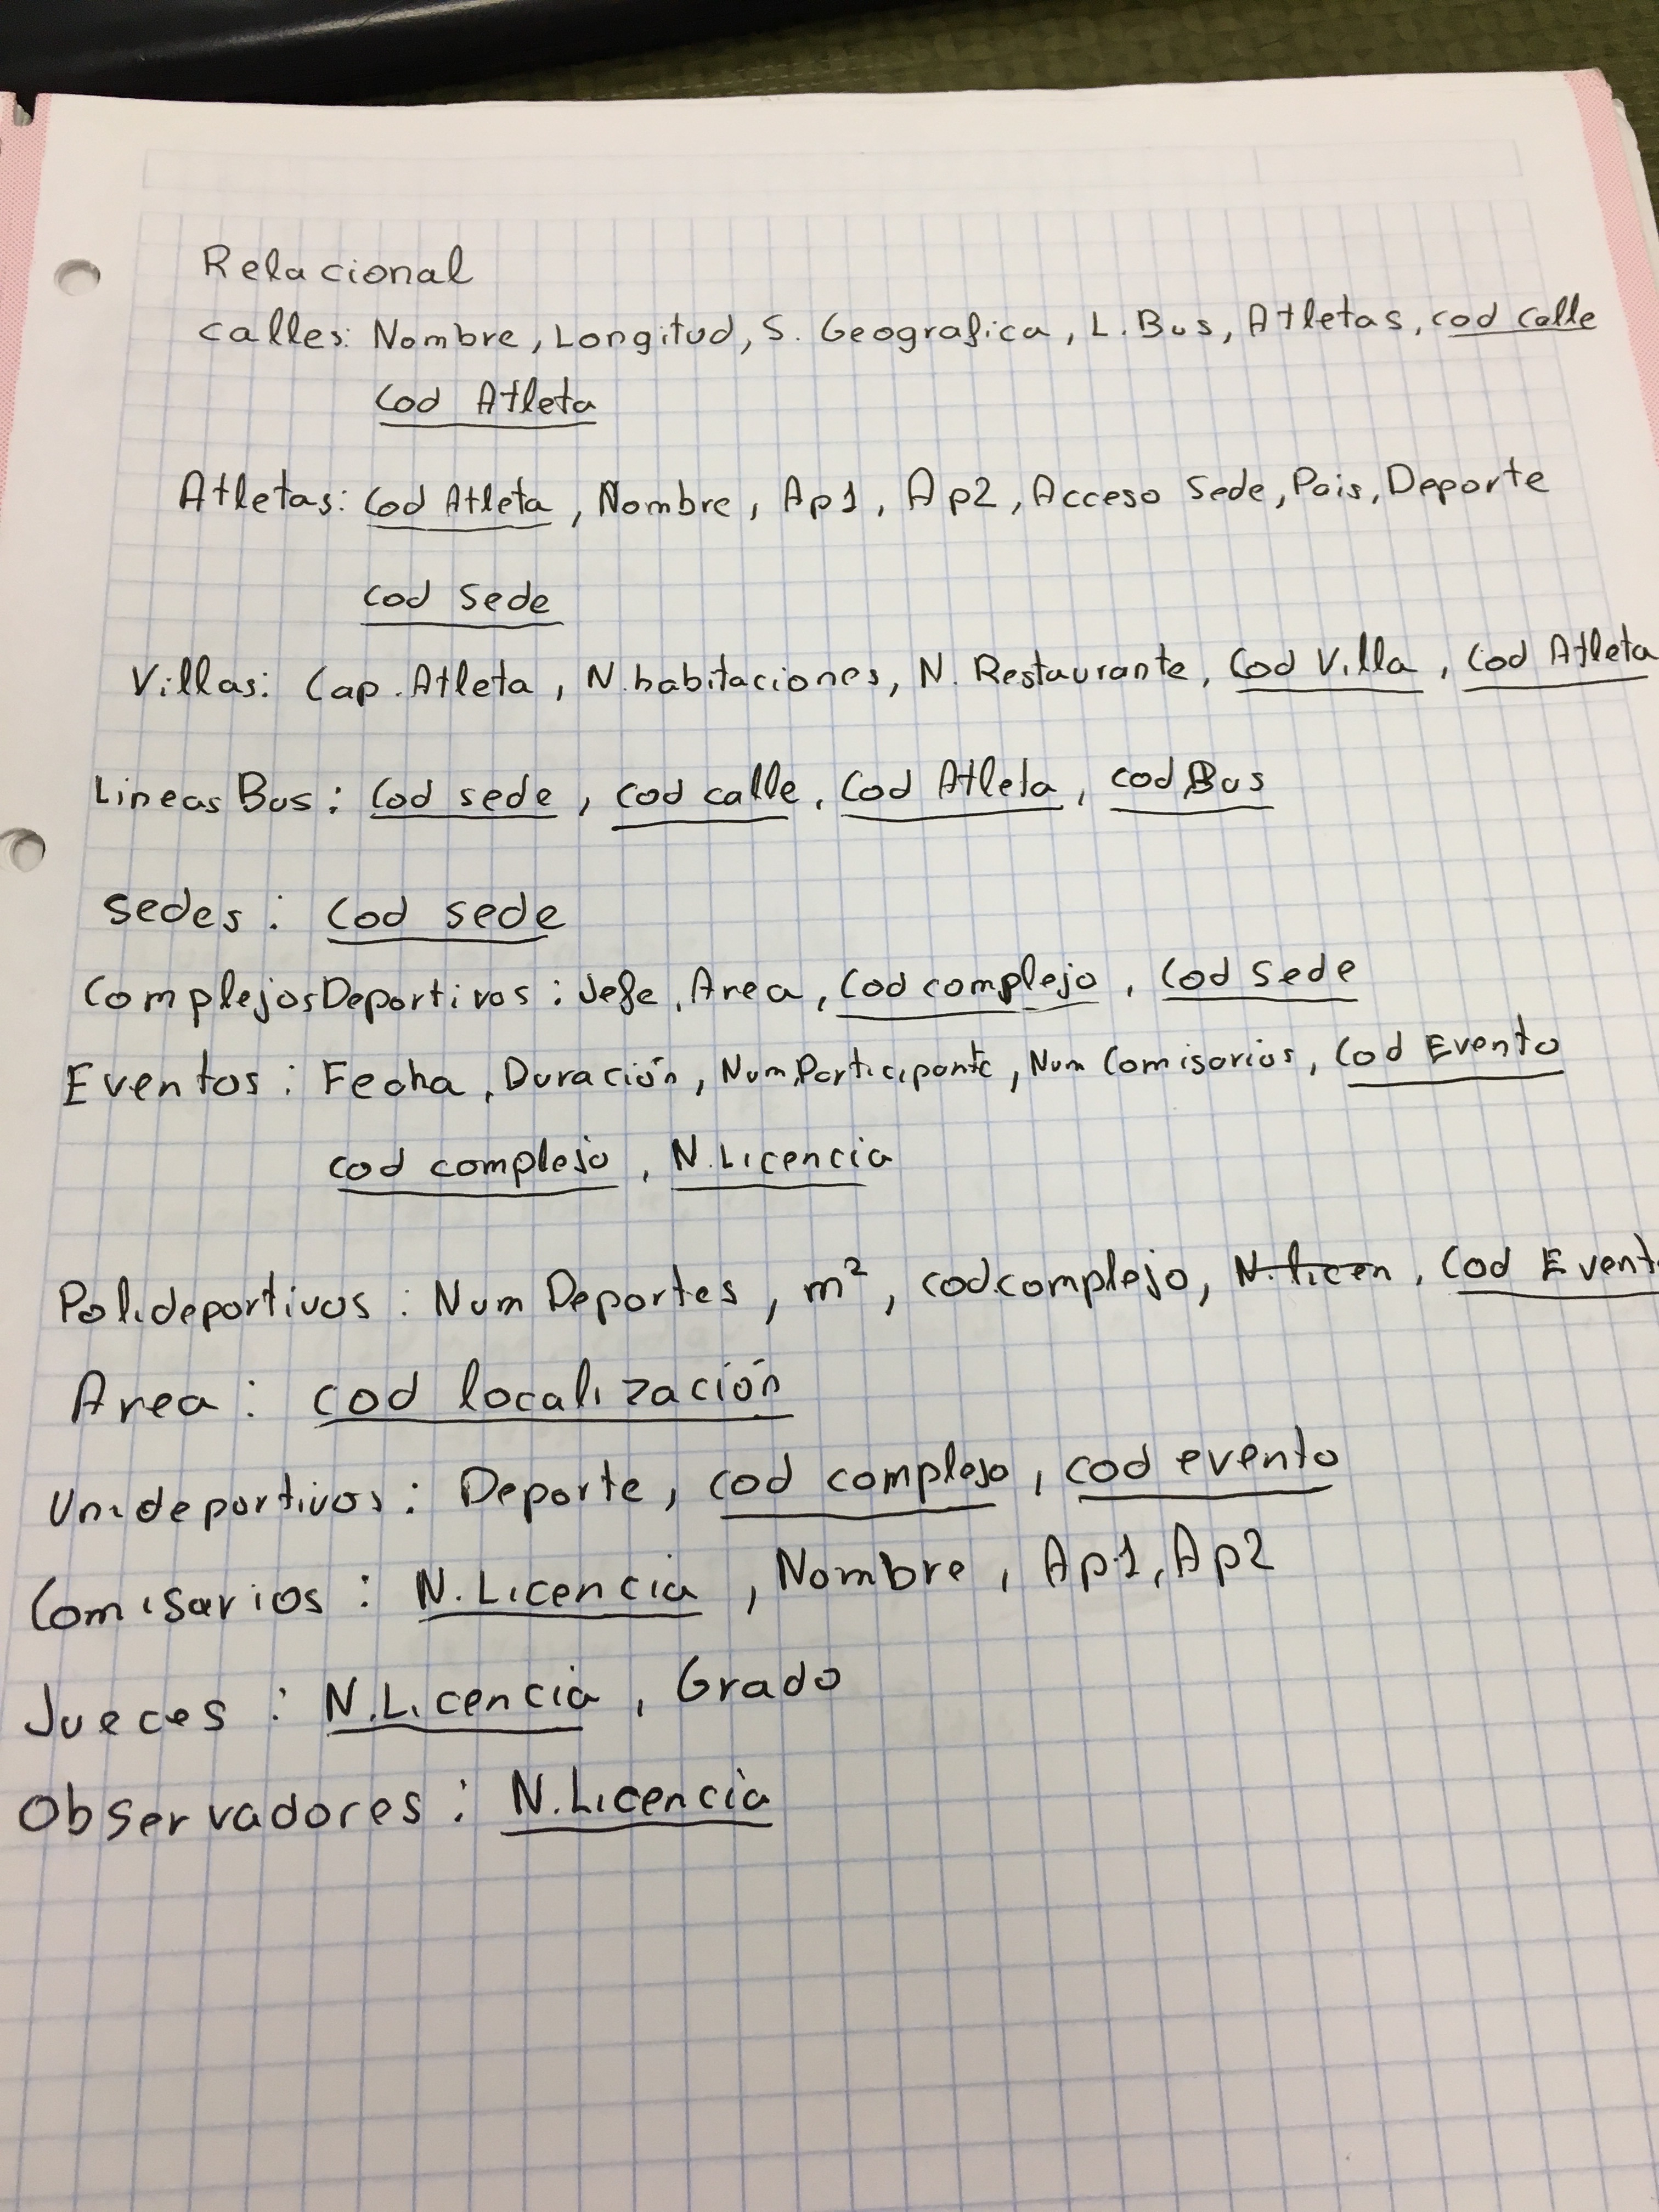 Relacional
calles: Nombre, Longitud, S. Geografica, L. Bus, Atletas, cod calle
Cod Atleta
Atletas: Cod Atleta, Nombre, Ap1, Ap2, Acceso Sede, Pais, Deporte
cod Sede
Villas: Cap. Atleta, N.habitaciones, N. Restaurante, Cod Villa, Cod Atleta
Lineas Bus: Cod sede, cod calle, Cod Atleta, cod Bus
Sedes: Cod sede
ComplejosDeportivos: Jefe, Area, Cod complejo, Cod Sede
Eventos: Fecha, Duración, Num.Participante, Num Comisarios, Cod Evento
cod complejo, N.Licencia
Polideportivos: Num Deportes, m², cod.complejo, N.licen, Cod Event
Area: cod localización
Unideportivos: Deporte, cod complejo, cod evento
Comisarios: N.Licencia, Nombre, Ap1, Ap2
Jueces: N.Licencia, Grado
Observadores: N.Licencia